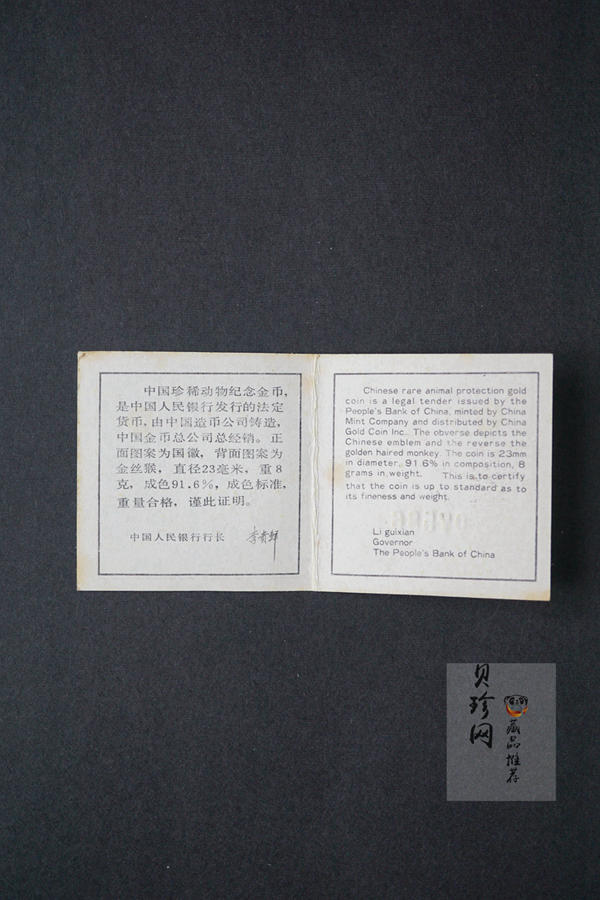 中国珍稀动物纪念金币，
是中国人民银行发行的法定
货币，由中国造币公司铸造，
中国金币总公司总经销。正
面图案为国徽，背面图案为
金丝猴，直径23毫米，重8
克，成色91.6%，成色标准，
重量合格，谨此证明。
中国人民银行行长 李贵鲜
Chinese rare animal protection gold
coin is a legal tender issued by the
People's Bank of China, minted by China
Mint Company and distributed by China
Gold Coin Inc.. The obverse depicts the
Chinese emblem and the reverse the
golden haired monkey. The coin is 23mm
in diameter, 91.6% in composition, 8
grams in weight. This is to certify
that the coin is up to standard as to
its fineness and weight.
Li guixian
Governor
The People's Bank of China
贝珍网
藏品推荐